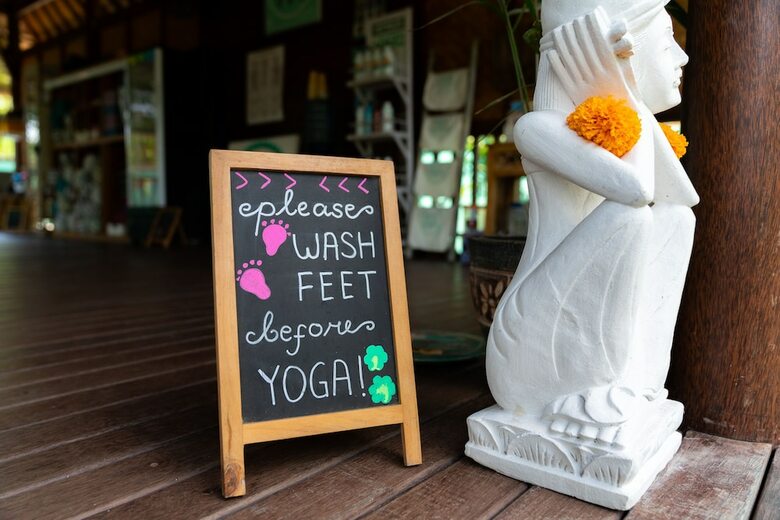 please
WASH
FEET
before
YOGA!